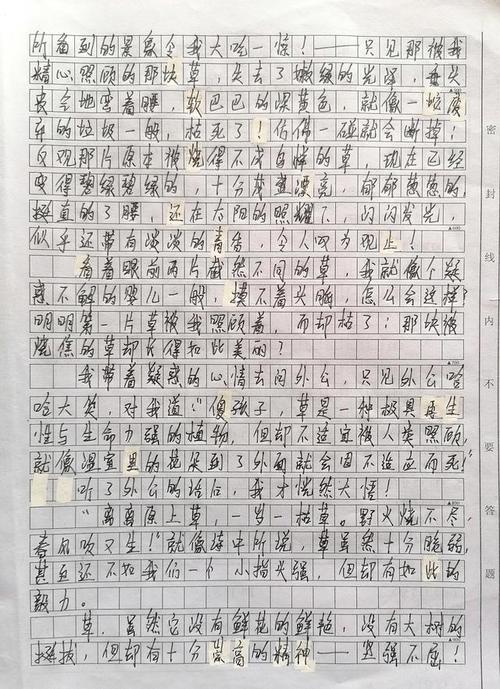 所看到的景象令我大吃一惊！——只见那被我
精心照顾的那块草，失去了嫩绿的光泽，垂头
丧气地弯着腰，软巴巴的深黄色，就像一垃废
弃的垃圾一般，枯死了！仿佛一碰就会断掉；
反观那片原本被烧得不成自样的草，现在已经
变得碧绿碧绿的，十分茂盛漂亮，郁郁葱葱的，
挺直的了腰，还在太阳的照耀下，闪闪发光，
似乎还带有淡淡的青香，令人叹为观止！
看着眼前两片截然不同的草，我就像个疑
惑不解的婴儿一般，摸不着头脑，怎么会这样？
明明第一片草被我照顾着，而却枯了；那块被
烧焦的草却长得如此美丽？
我带着疑惑的心情去问外公，只见外公哈
哈大笑，对我道：“傻孩子，草是一种极具再生
性与生命力强的植物，但却不适宜被人类照顾，
就像温室里的花朵到了外面就会因不适应而死！”
听了外公的话后，我才恍然大悟！
“离离原上草，一岁一枯草。野火烧不尽，
春风吹又生！”就像诗中所说，草虽然十分脆弱，
甚至还不如我们一个小指头强，但却有如此的
毅力。
草，虽然它没有鲜花的鲜艳，没有大树的
挺拔，但却有十分崇高的精神——坚强不屈！
密
封
线
内
不
要
答
题